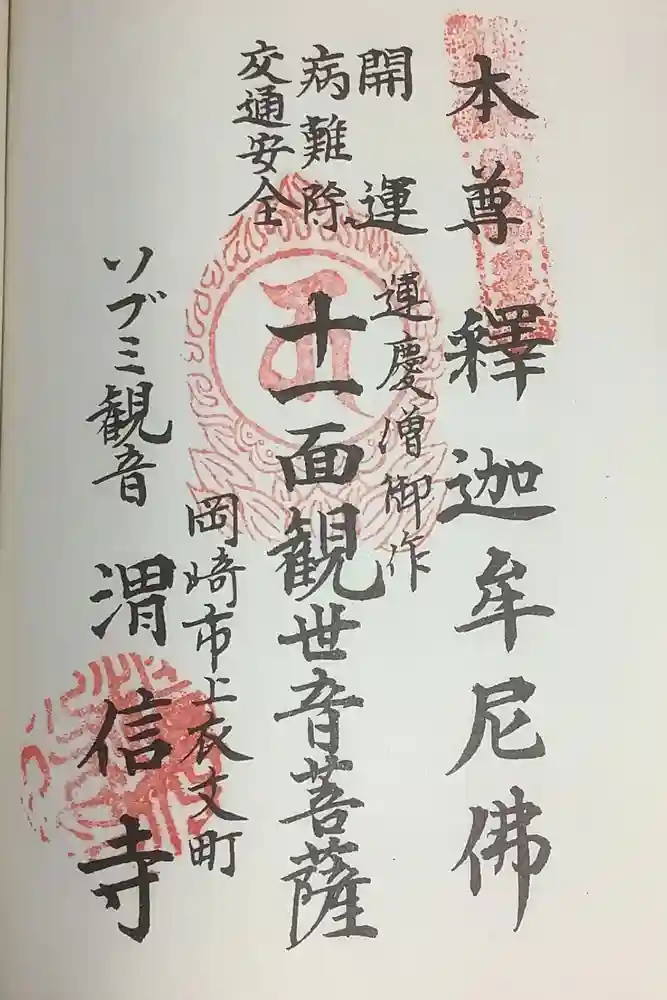 本尊 釋迦牟尼佛
開運
運慶僧御作
病難除
十一面観世音菩薩
交通安全
岡崎市上衣文町
ソブミ観音
渭信寺